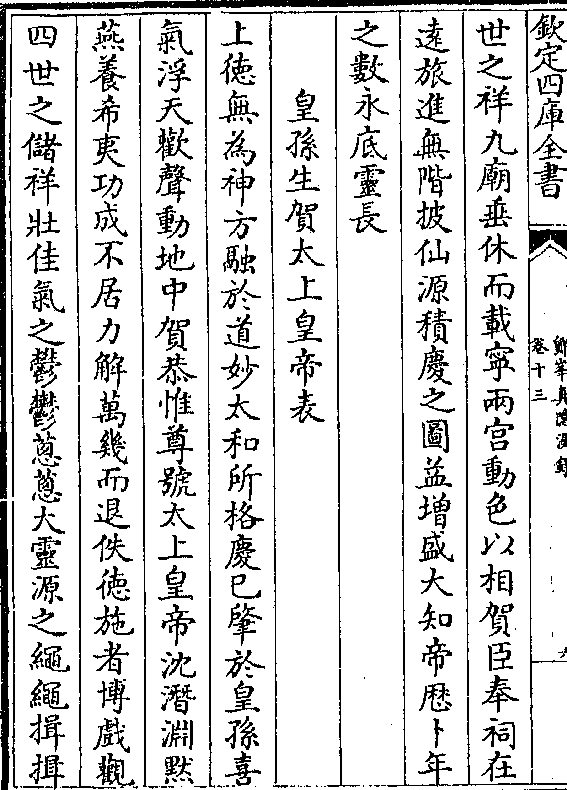 欽定四庫全書
卷十三
世之祥九廟垂休而載寧兩宮動色以相賀臣奉祠在
遠旅進無階披仙源積慶之圖益增盛大知帝歴卜年
之數永底靈長
皇孫生賀太上皇帝表
上徳無為神方融於道妙太和所格慶已肇於皇孫喜
氣浮天歡聲動地中賀恭惟尊號太上皇帝沈潛淵黙
燕養希夷功成不居力解萬幾而退佚徳施者博戲觀
四世之儲祥壯佳氣之鬱鬱蔥蔥大靈源之繩繩揖揖